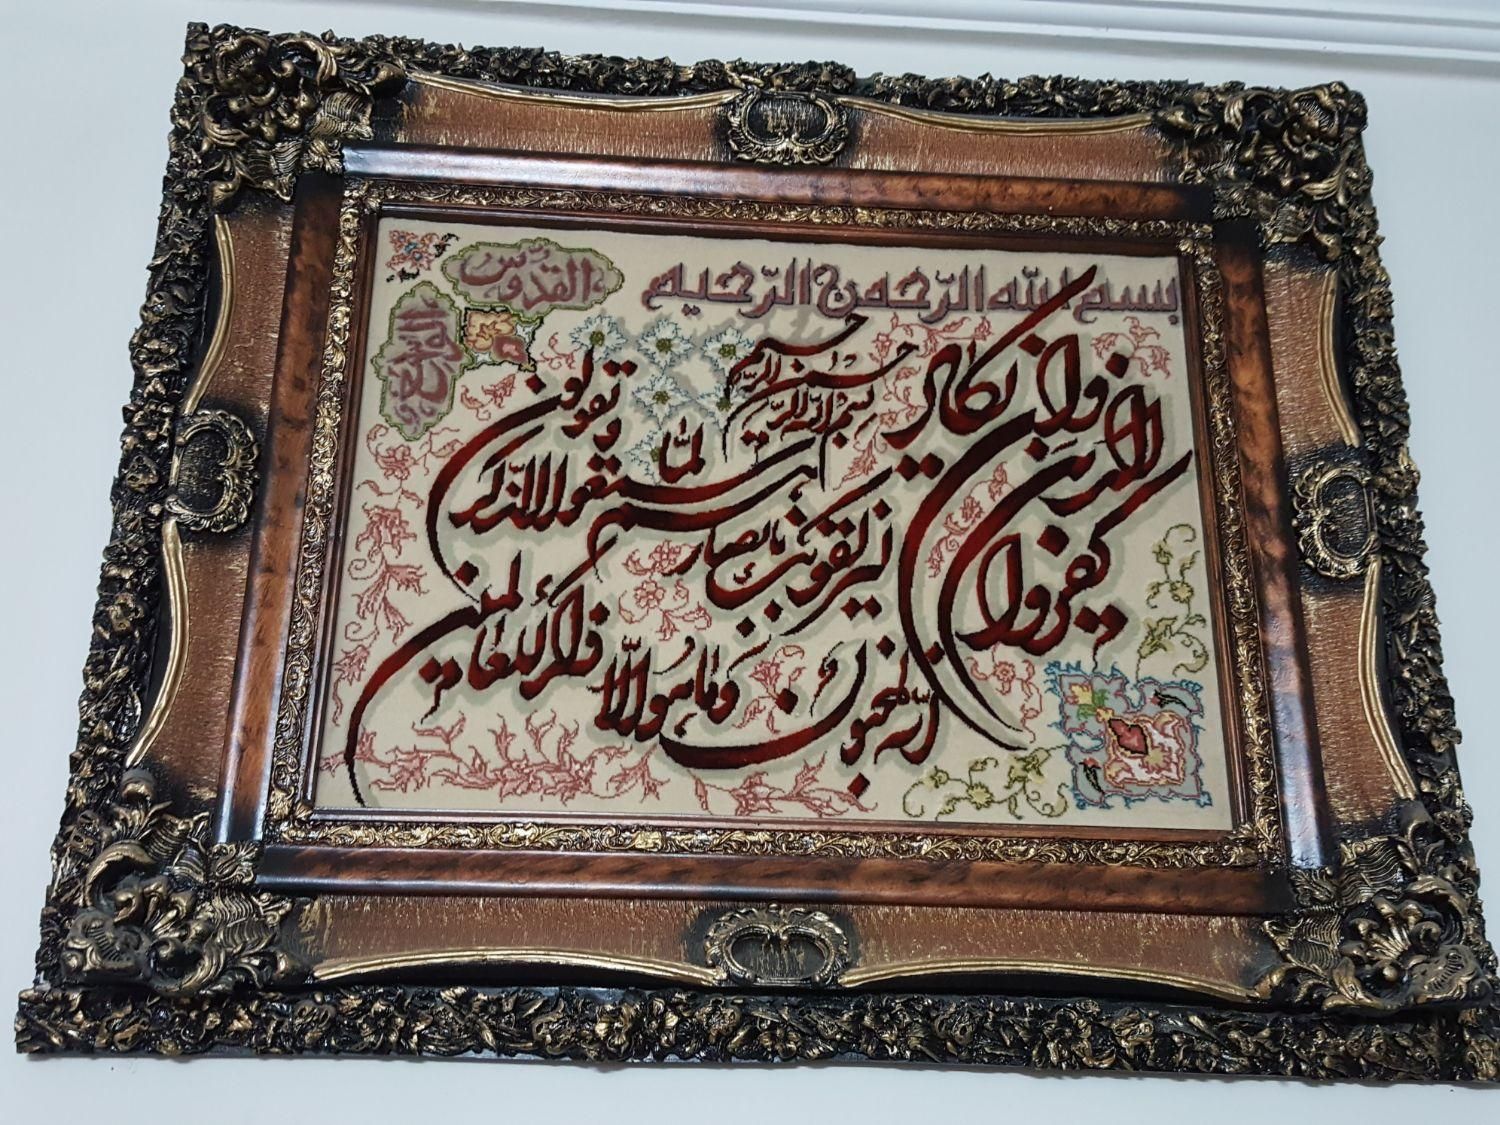 بسم الله الرّحمن الرّحیم
القدّوس
بسم الله الرحمن الرحیم
وان یکاد الذین کفروا
لیزلقونک بابصارهم
لمّا سمعوا الذکر
و یقولون
انّه لمجنون
وما هو الّا ذکر للعالمین